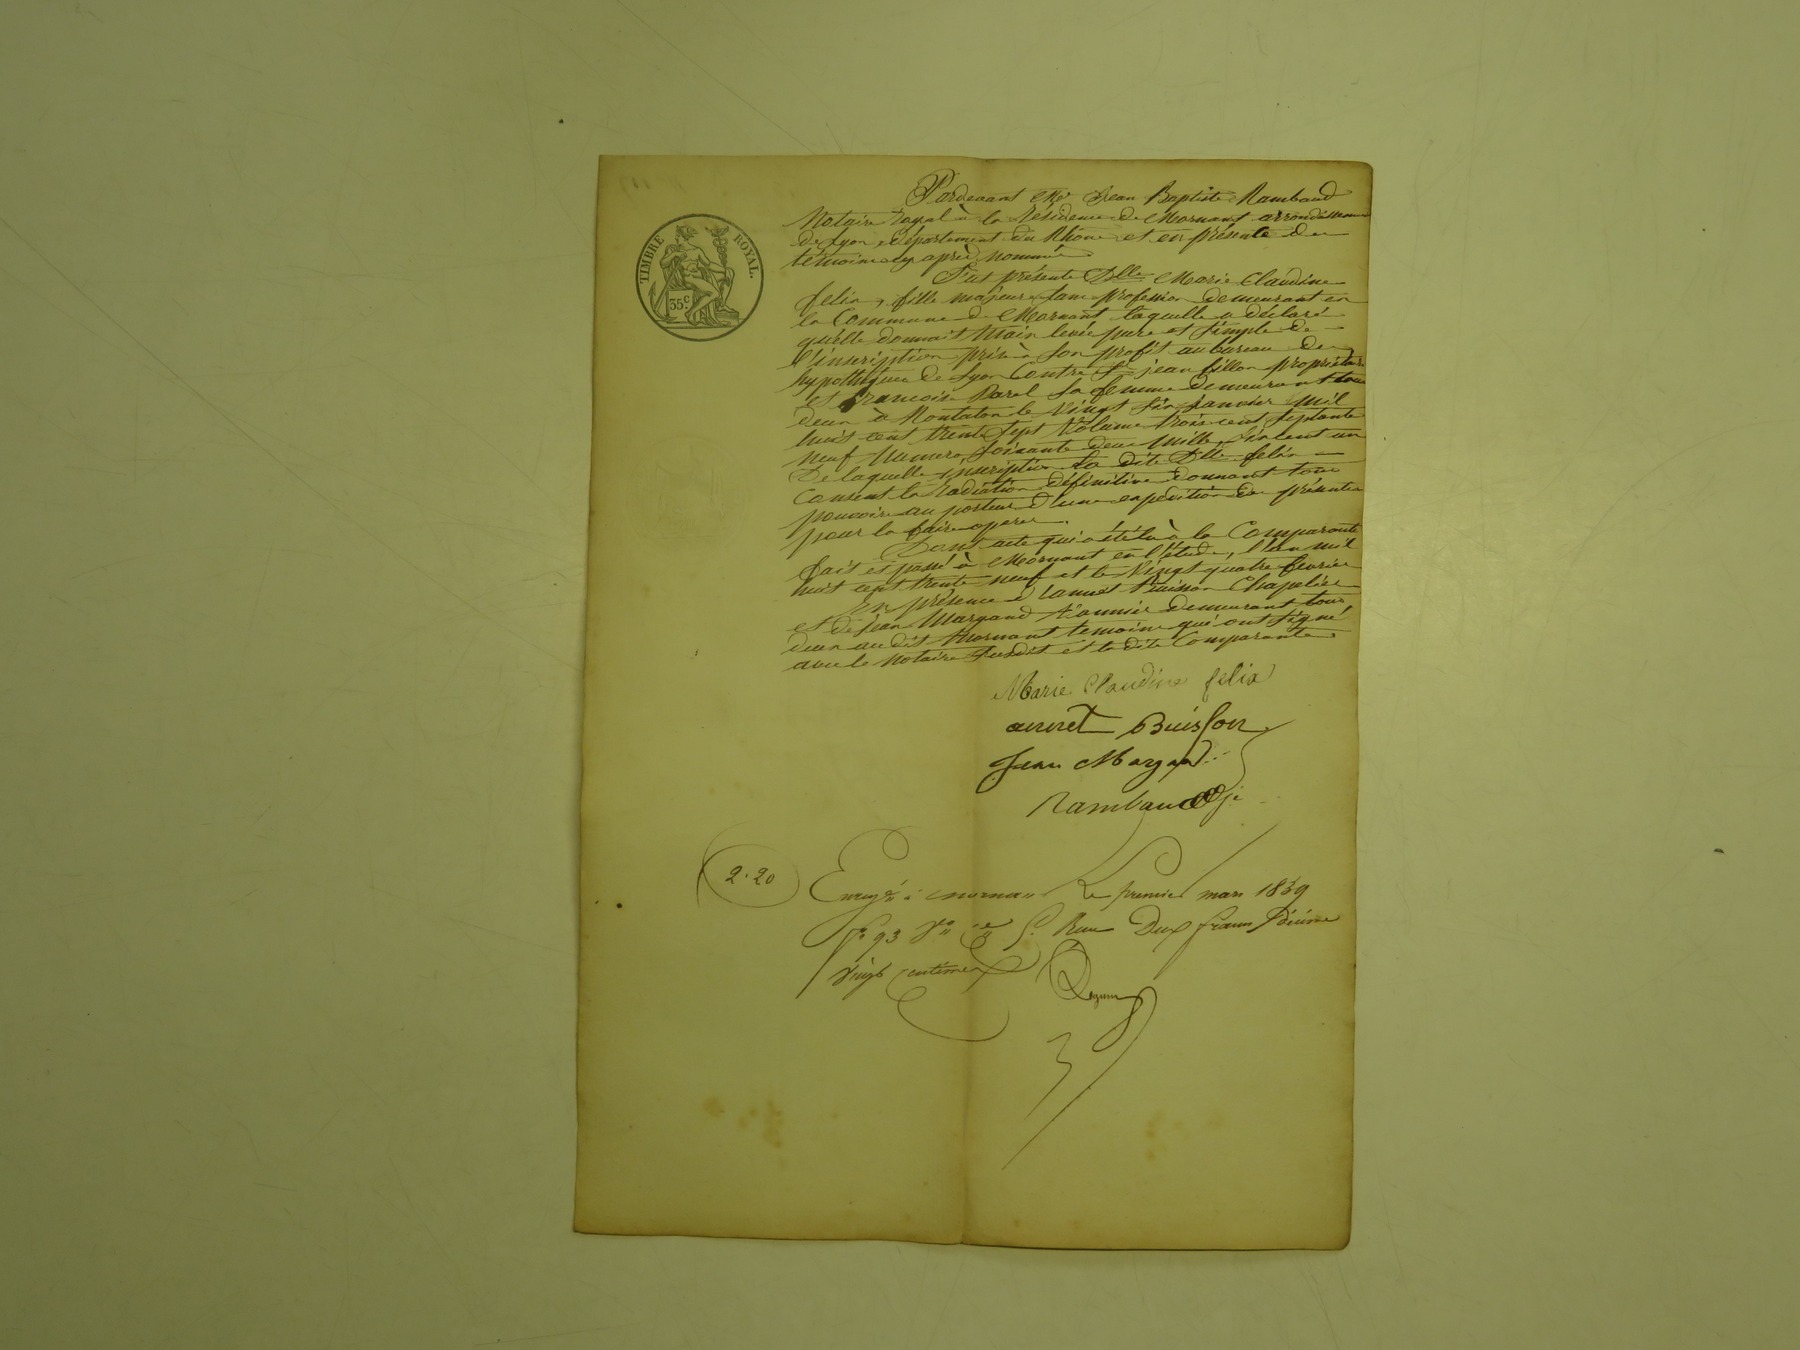 TIMBRE ROYAL.
35c
Pardevant Me Jean Baptiste Rambaud
Notaire royal à la résidence de Mornant arrondissement
de Lyon département du Rhône et en présence des
témoins cy après nommés
Fut présente Dlle Marie Claudine
felix, fille majeure sans profession demeurant en
la Commune de Mornant laquelle a déclaré
qu'elle donnait Main levée pure et simple de
l'inscription prise à son profit au bureau des
hypothèques de Lyon Contre Sr jean fillon propriétaire
et francoise Parel sa femme demeurant tous
deux à le vingt six Janvier mil
huit cent trente sept Volume trois cent septante
neuf Numero soixante deux mille six cent un
De laquelle inscription la dite Dlle felix
Consent la Radiation définitive donnant tous
pouvoirs au porteur d'une expédition des présentes
pour la faire operer.
Dont acte qui a été lû à la Comparante
fait et passé à Mornant en l'étude, l'an mil
huit cent trente neuf et le Vingt quatre fevrier
En présence d'annet Buisson Chapelier
et de jean Margand demeurant tous
deux au dit Mornant temoins qui ont signé
avec le Notaire susdit et la dite Comparante
Marie Claudine felix
annet Buisson
Jean Margand
Rambaud
2.20
Enregé à Mornant Le premier mars 1839
fo 93 Vo Ce 5. Reçu Deux francs décime
Vingt centimes